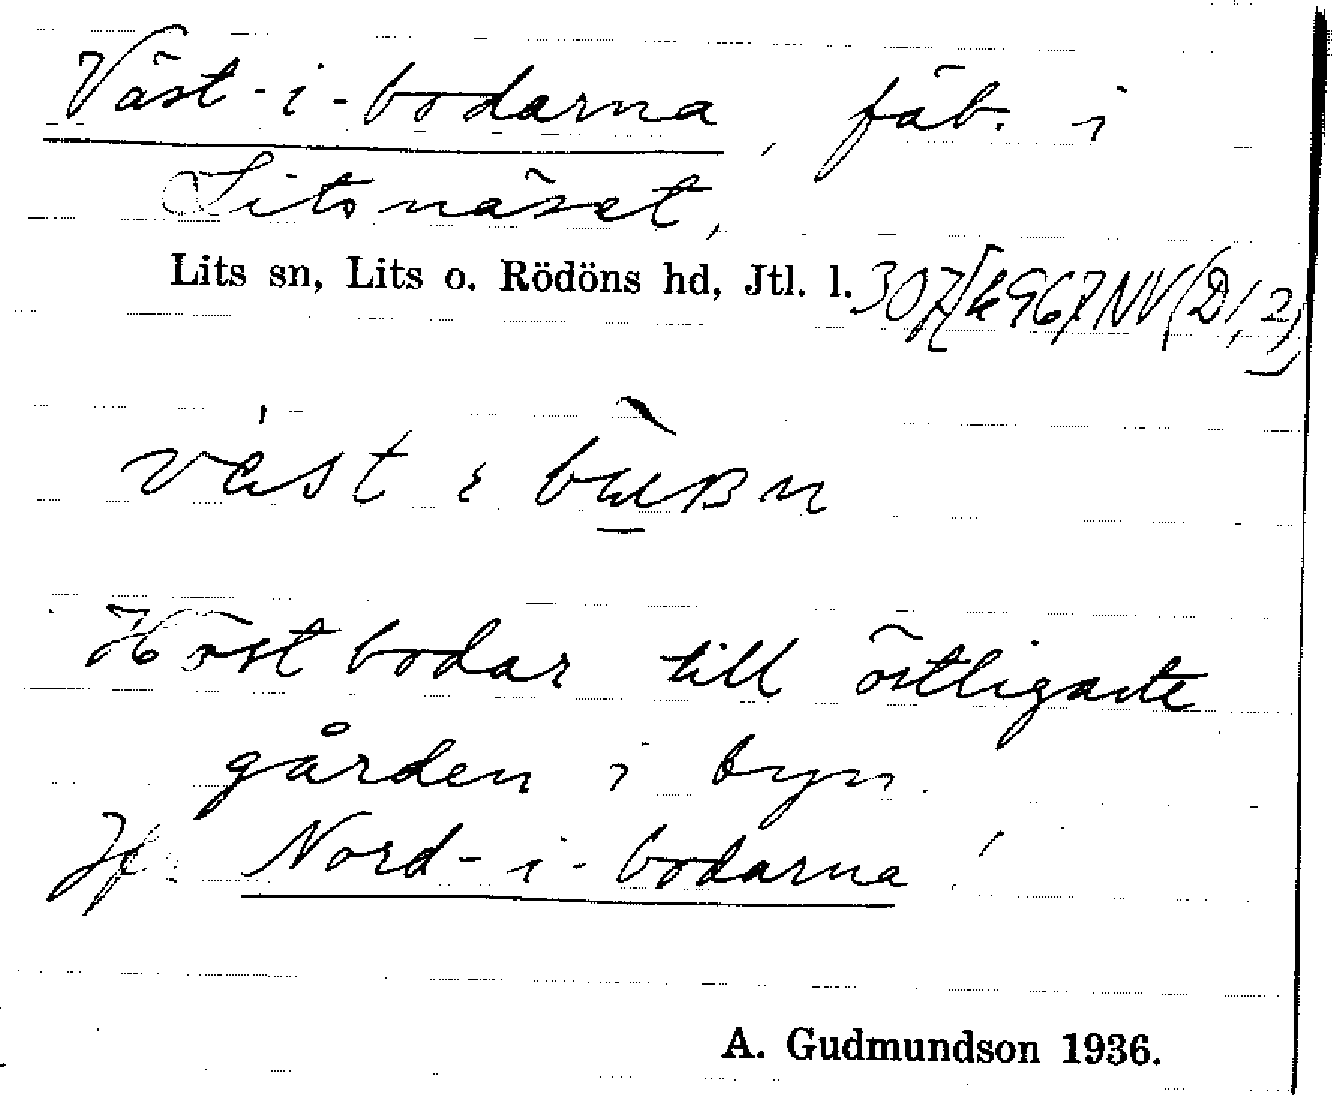 Väst-i-bodarna, fäb. i
Litsnäset,
Lits sn, Lits o. Rödöns hd, Jtl. l.
väst i
Höstbodar till östligaste
gården i byn.
Jf. Nord-i-bodarna!
A. Gudmundson 1936.